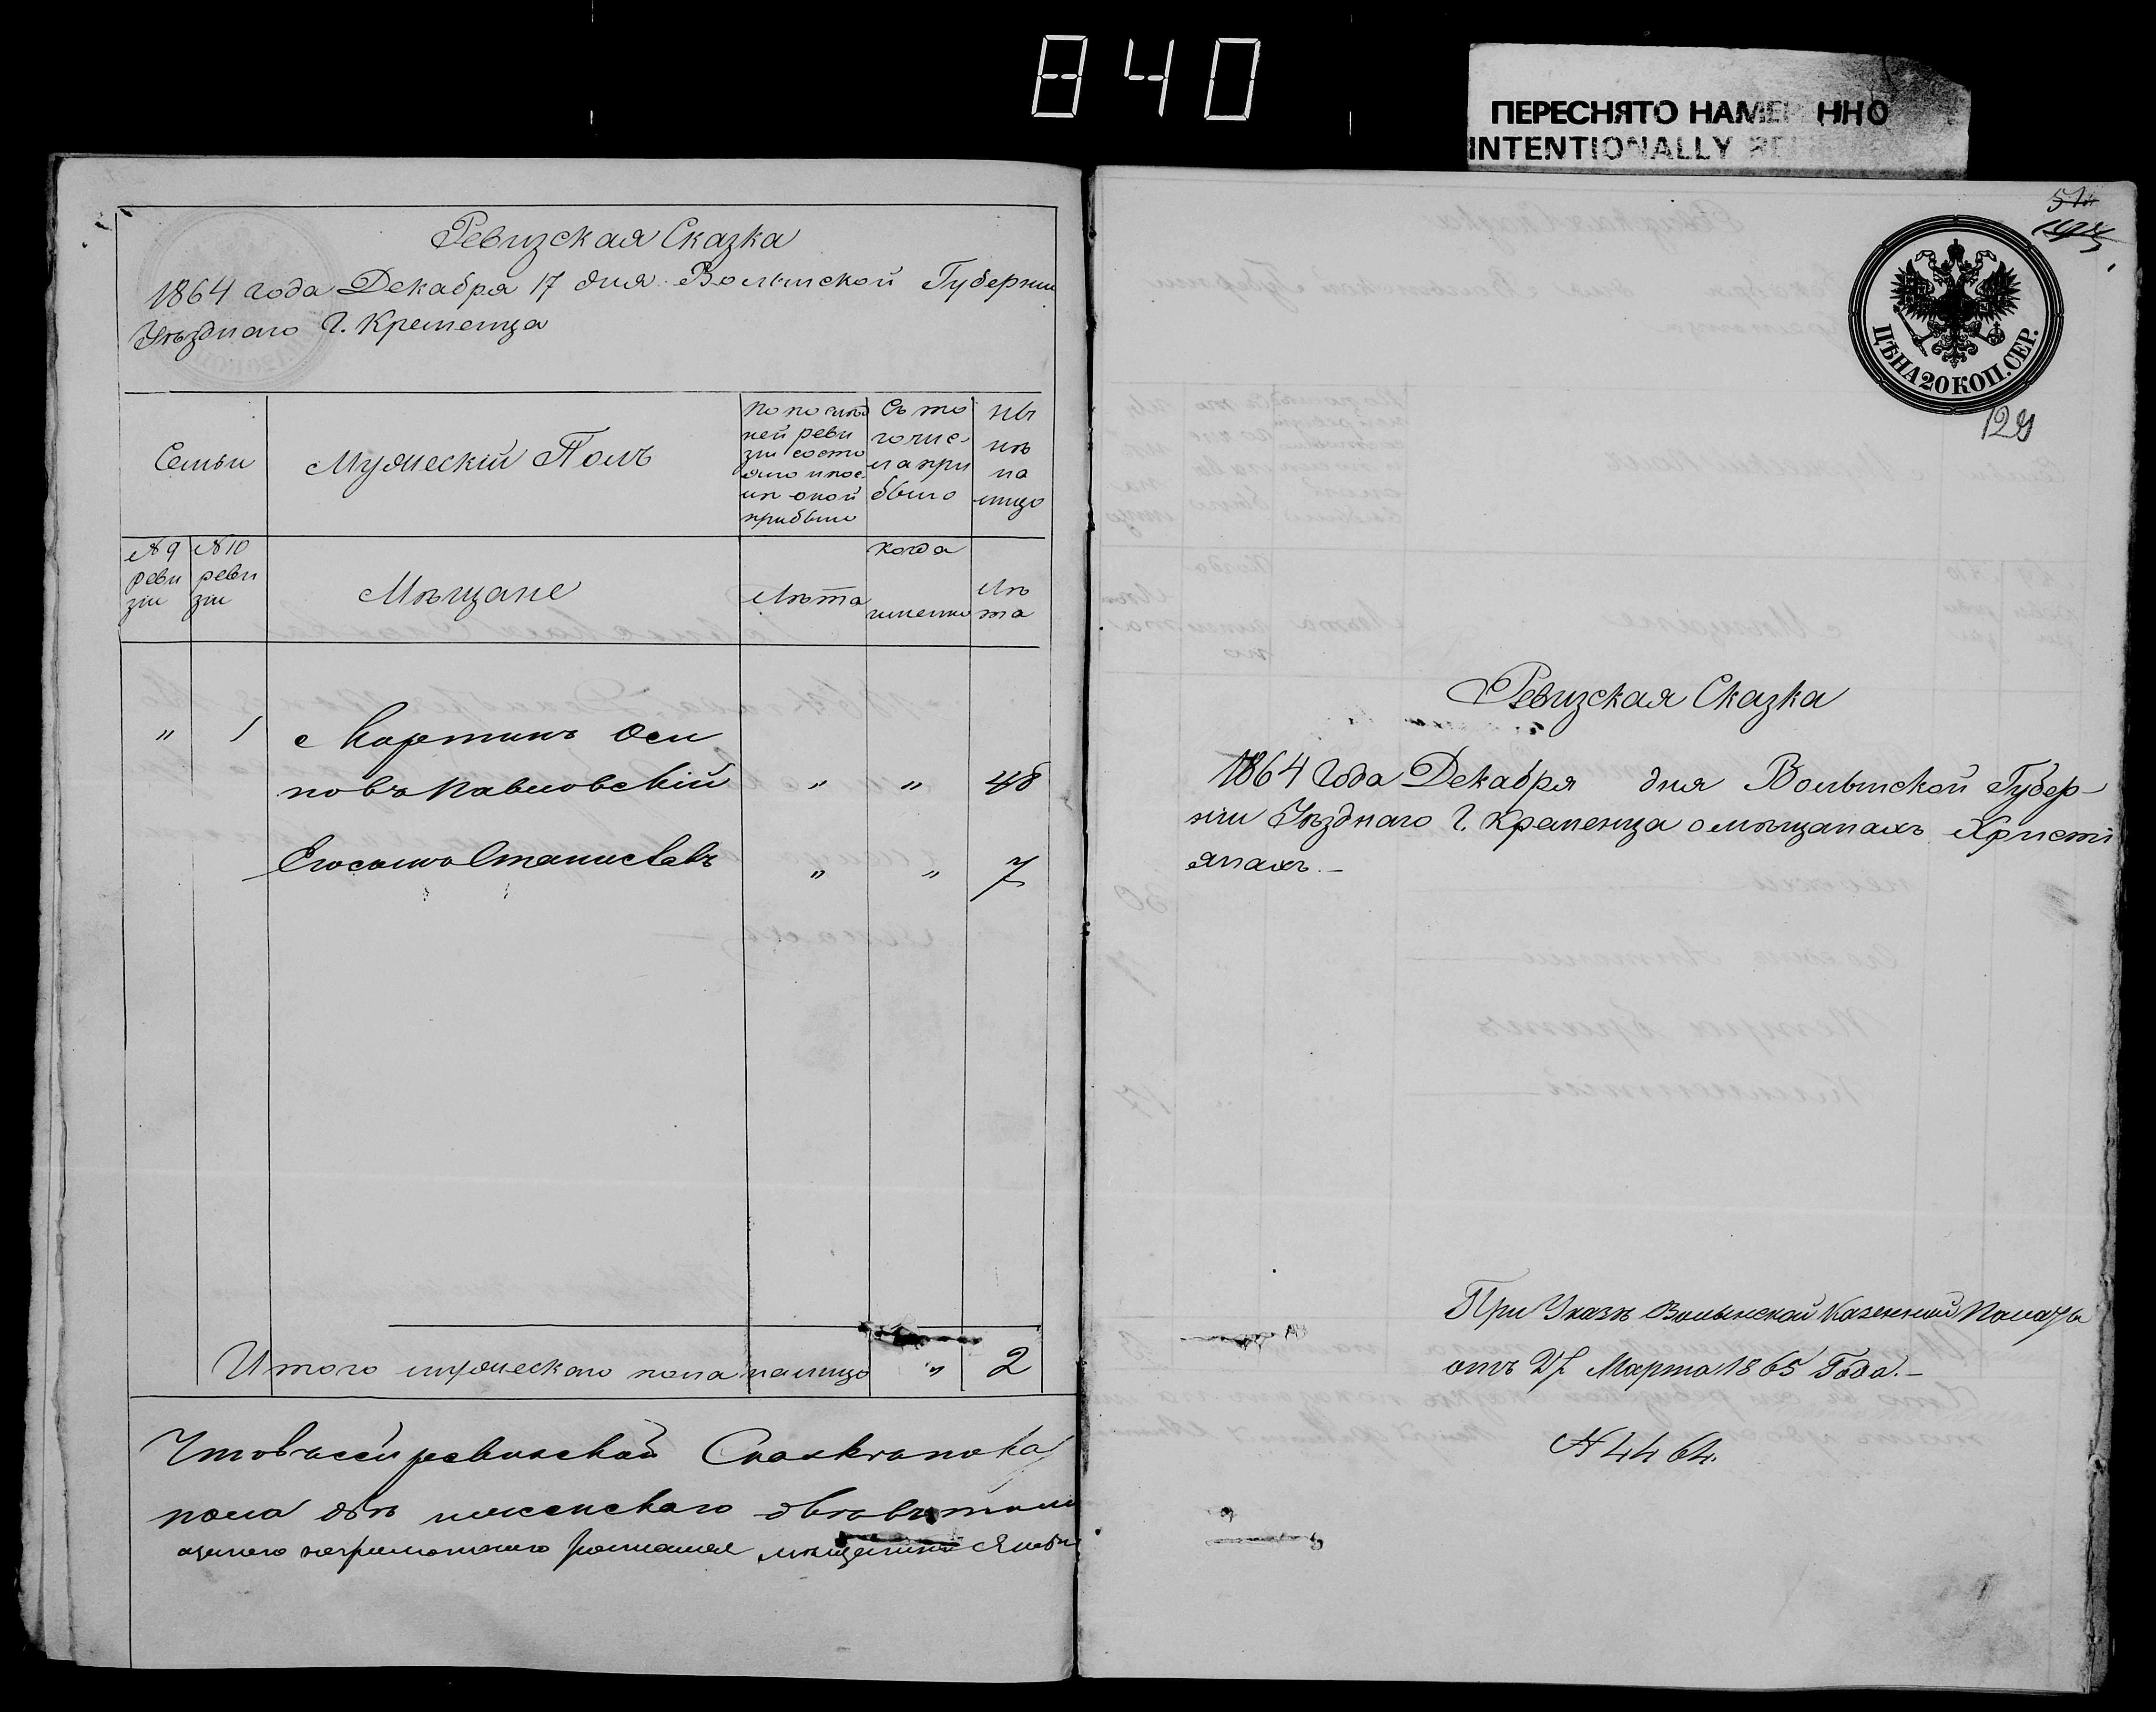 840
ПЕРЕСНЯТО НАМЕР ННО
INTENTIONALLY RE
Ревизская Сказка
1864 года Декабря 17 дня Волынской Губернии
Уѣзднаго Г. Кременца
Семьи
Мужескій Полъ
По послѣд
ней реви
зіи состо
яло и посл
ѣ оной
прибыло
Съ то
го чис
ла при
было
Ны
нѣ
на
лицо
№ 9
реви
зіи
№ 10
реви
зіи
Мѣщане
Лѣта
когда
именно
Лѣ
та
" 1 Мартинъ Оси
повъ Павловскій " " 48
Его сынъ Станиславъ " " 7
Итого мужескаго пола на лицо " 2
Что въ сей ревизской
пола женскаго
неграмотнаго мѣщанина
51
ЦѢНА 20 КОП. СЕР.
129
Ревизская Сказка
1864 Года Декабря дня Волынской Губер-
ніи Уѣзднаго Г. Кременца о мѣщанахъ Христі
янахъ.-
При Указѣ Волынской Казенной Палаты
отъ Марта 1865 Года.-
№ 4464.